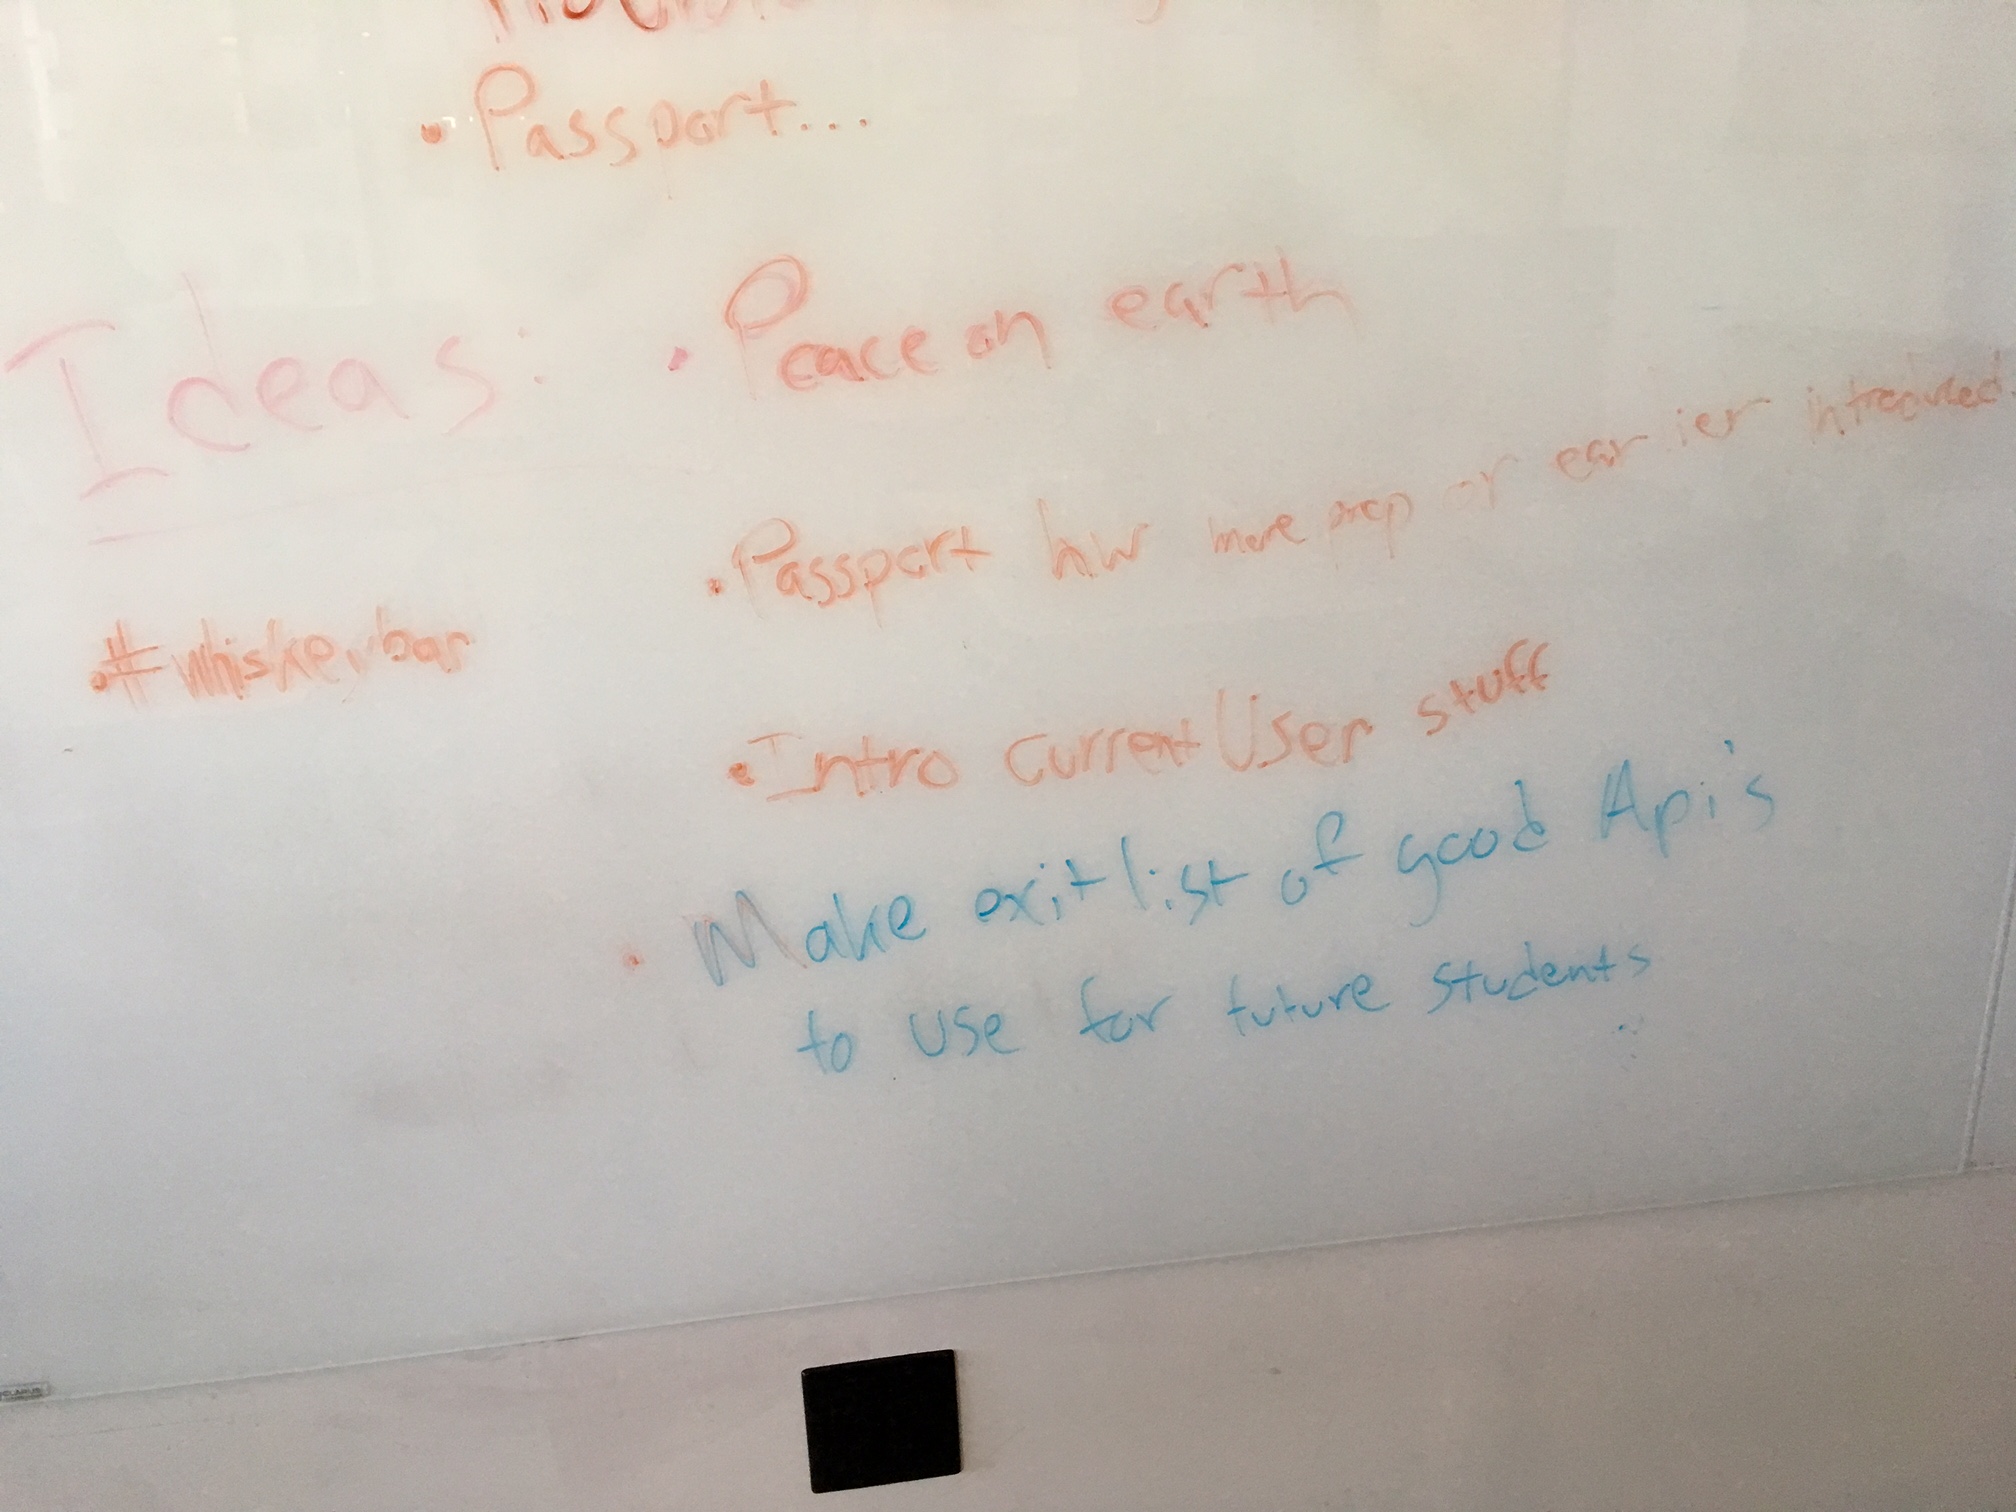 • Passport...
Ideas: • Peace on earth
• Passport hw more prep or earlier introduced
• #whiskeybar
• Intro currentUser stuff
• Make exit list of good Api's
to use for future students